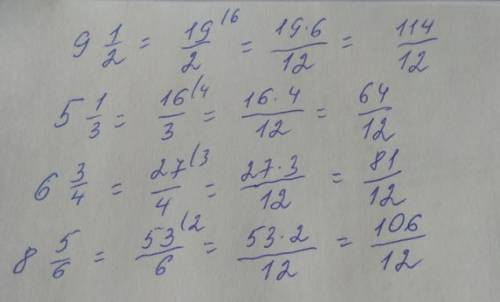 9 1/2 = 19/2 (6 = 19·6/12 = 114/12
5 1/3 = 16/3 (4 = 16·4/12 = 64/12
6 3/4 = 27/4 (3 = 27·3/12 = 81/12
8 5/6 = 53/6 (2 = 53·2/12 = 106/12